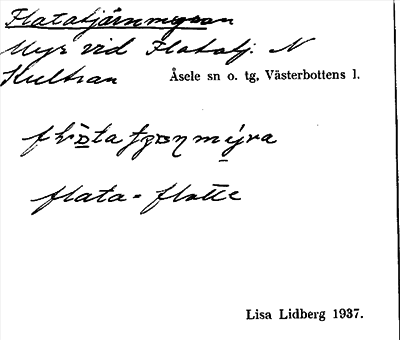 Flatatjärnmyran
Myr vid Flatatj. N
Kultran
Åsele sn o. tg, Västerbottens l.
flata = flatte
Lisa Lidberg 1937.